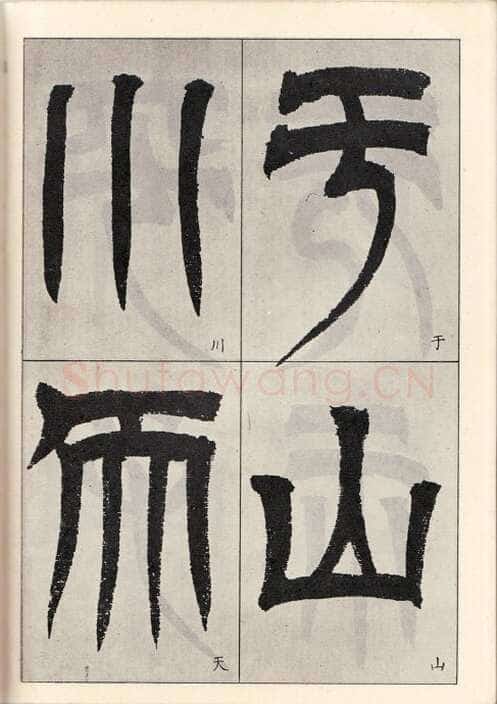 于
于
山
山
川
川
天
天
Shufawang.CN